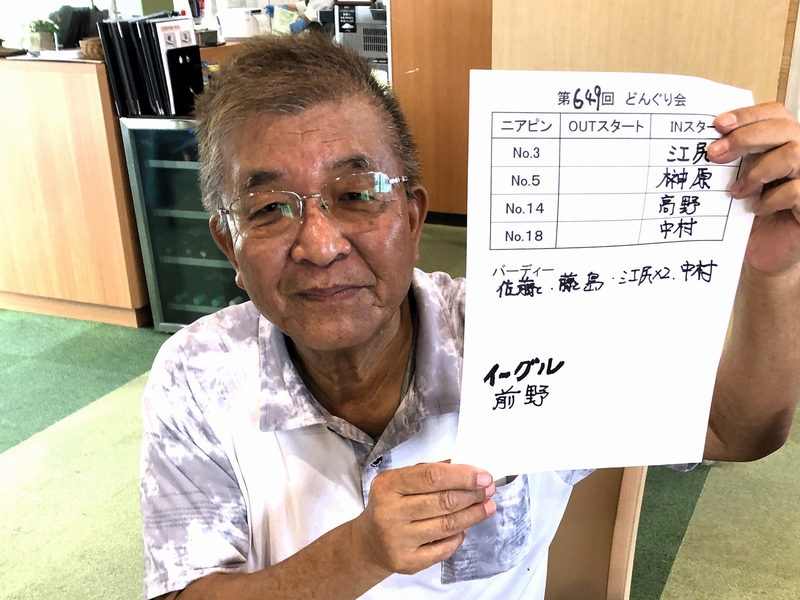 第649回 どんぐり会
ニアピン OUTスタート INスター
No.3 江尻
No.5 榊原
No.14 高野
No.18 中村
バーディー
佐藤と・藤と島・江尻×2、中村
イーグル
前野